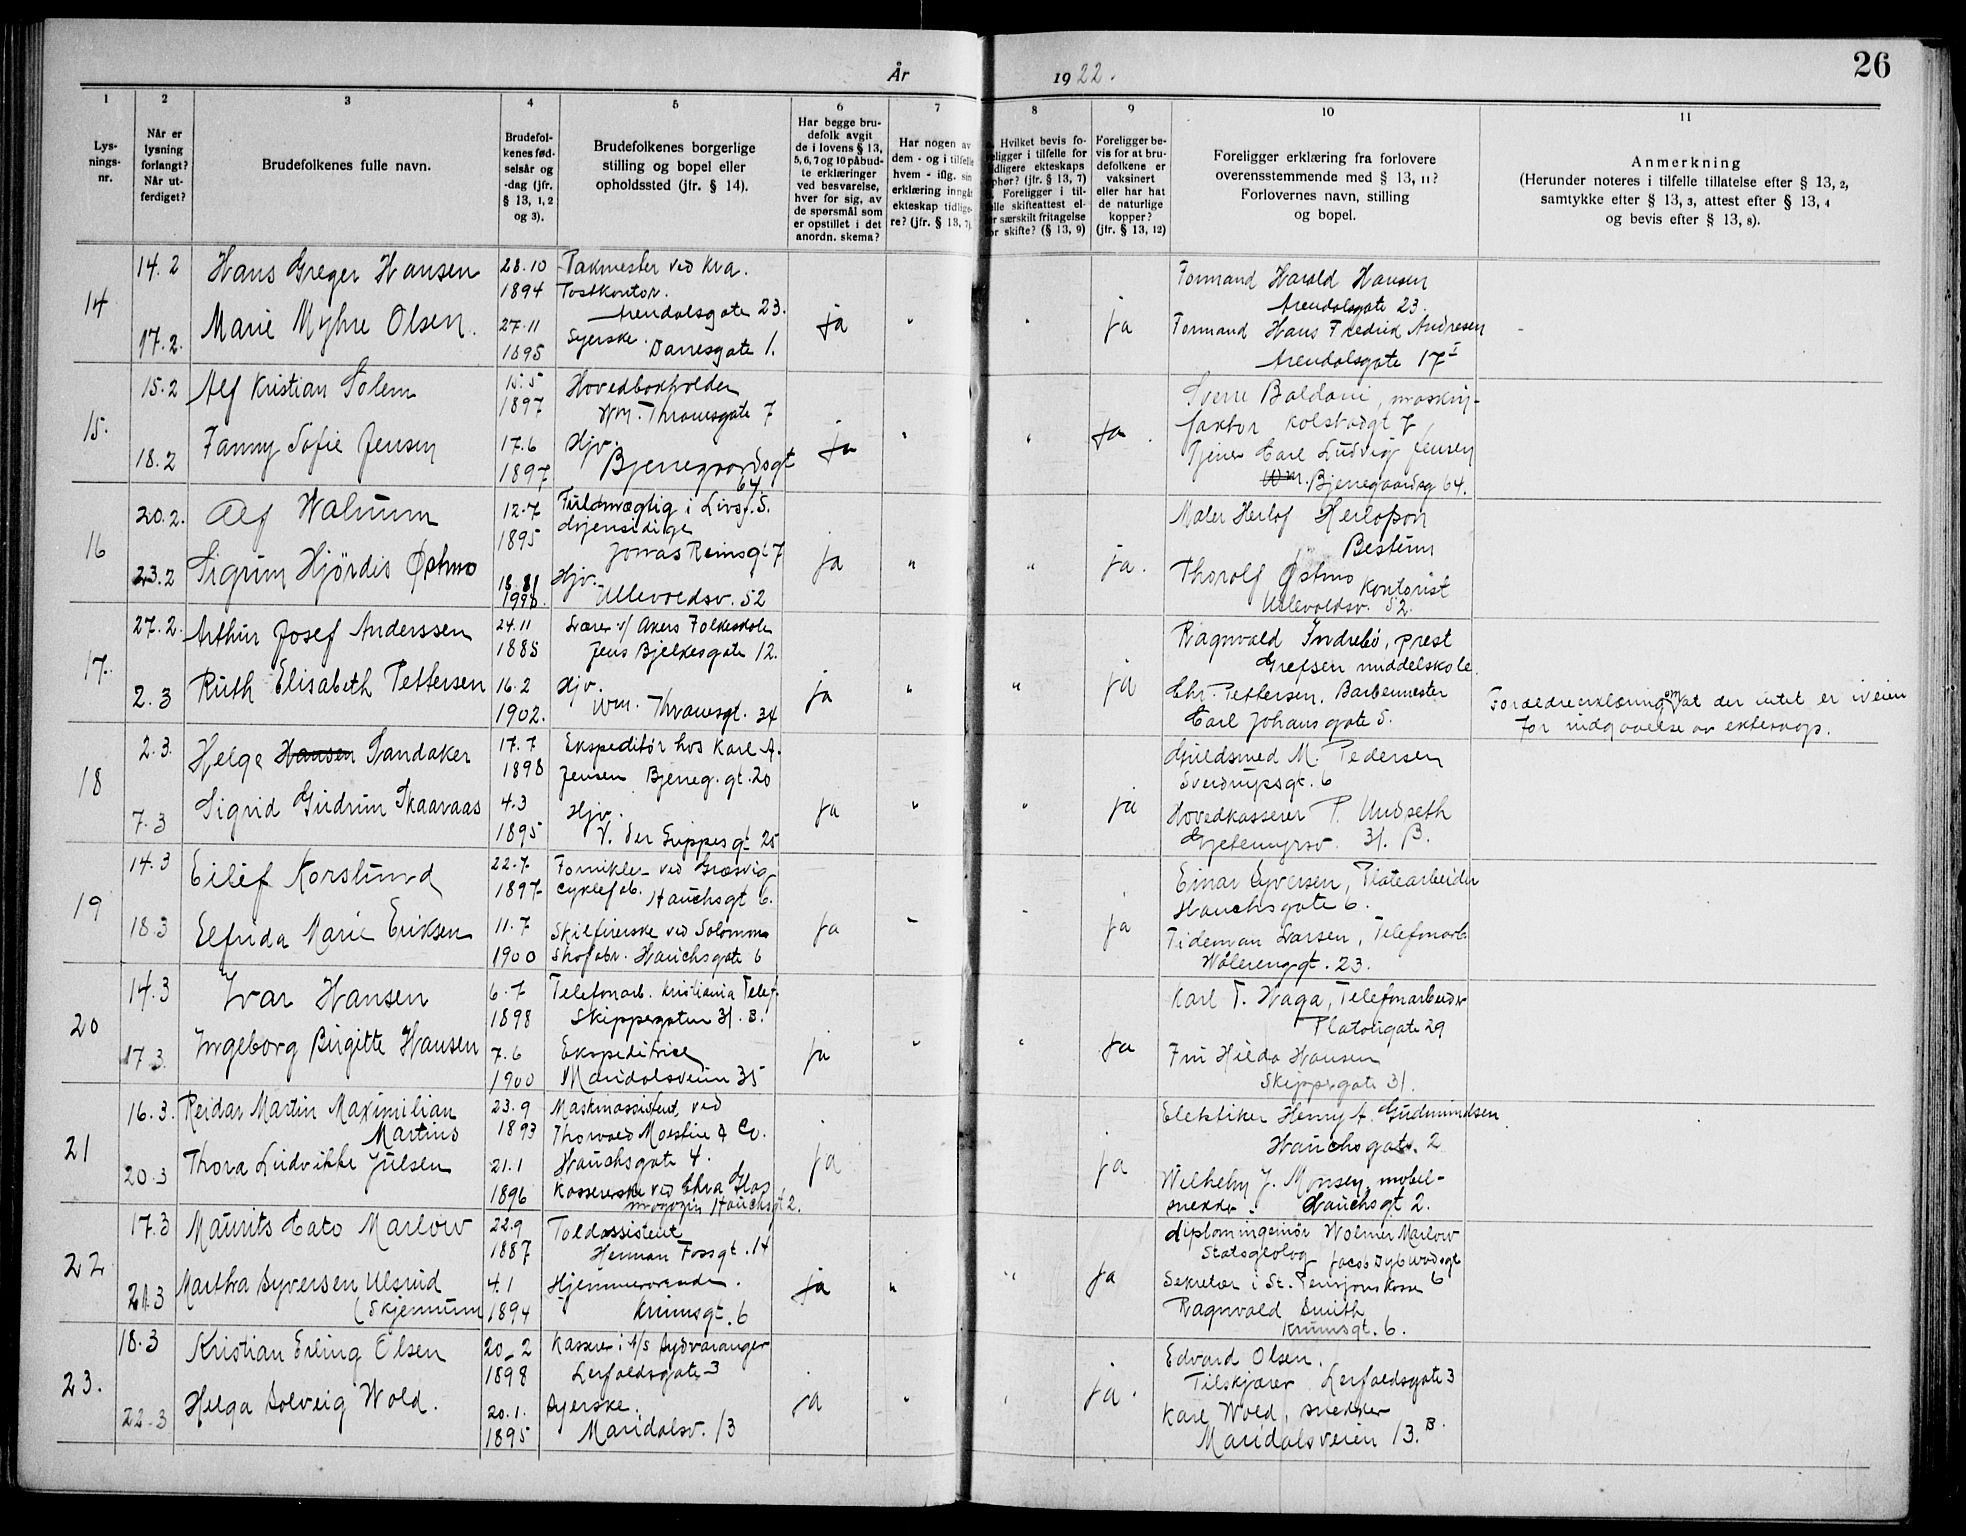 26
År 1922.
1 2 3 4 5 6 7 8 9 10 11
Lys-
nings-
nr.
Når er
lysning
forlangt?
Når ut-
ferdiget?
Brudefolkenes fulle navn.
Brudefol-
kenes fød-
selsår og
-dag (jfr.
§ 13, 1, 2
og 3).
Brudefolkenes borgerlige
stilling og bopel eller
opholdssted (jfr. § 14).
Har begge bru-
defolk avgit
de i lovens § 13,
5, 6, 7 og 10 påbud-
te erklæringer
ved besvarelse,
hver for sig, av
de spørsmål som
er opstillet i det
anordn. skema?
Har nogen av
dem - og i tilfelle
hvem - iflg. sin
erklæring inngåt
ekteskap tidlige-
re? (jfr. § 13, 7).
Hvilket bevis fo-
religger i tilfelle for
tidligere ekteskaps
ophør? (jfr. § 13, 7)
Foreligger i til-
felle skifteattest el-
ler særskilt fritagelse
for skifte? (§ 13, 9)
Foreligger be-
vis for at bru-
defolkene er
vaksinert
eller har hat
de naturlige
kopper?
(jfr. § 13, 12)
Foreligger erklæring fra forlovere
overensstemmende med § 13, 11?
Forlovernes navn, stilling
og bopel.
Anmerkning
(Herunder noteres i tilfelle tillatelse efter § 13, 2,
samtykke efter § 13, 3, attest efter § 13, 4
og bevis efter § 13, 8).
14
14.2
17.2.
Hans Greger Hansen
Marie Myhre Olsen.
28.10
1894
27.11
1895
Pakmester ved Kra.
Postkontor.
Arendalsgate 23.
Syerske.
Danesgate 1.
ja
ja
Formand Harald Hansen
Arendalsgate 23.
Formand Hans Fredrik Andresen
Arendalsgate 17 I
15.
15.2
18.2
Alf Kristian Solem
Fanny Sofie Jensen
15.5
1897
17.6
1897
Hovedbokholder
Wm. Thranesgate 7
Hjv.
Bjerregaardsgt
64
ja
ja.
Sverre , maskin-
faktor Kolstadgt 7
Carl Ludvig Jensen
Wm. Bjerregaardsg 64.
16
20.2.
23.2
Alf Walnum
Sigrun Hjördis Østmo
12.7
1895
18.81
1898.
Fuldmægtig i Livsf.S.
Gjensidige
Jonas Reinsgt 7
Hjv.
Ullevoldsv. 52
ja
ja.
Maler Herlof Herlofson
Bestum
Thorolf Østmo
Kontorist
Ullevoldsv. 52.
17.
27.2.
2.3
Arthur Josef Anderssen
Ruth Elisabeth Pettersen
24.11
1885
16.2
1902.
Lærer v/ Akers Folkeskole
Jens Bjelkesgate 12.
Hjv.
Wm. Thranesgt. 34
ja
ja
Ragnvald Indrebö, prest
Grefsen middelskole
Chr. Pettersen. Barbermester
Carl Johans gate 5.
Forældreerklæring om at der intet er iveien
for indgaaelse av ekteskap.
18
2.3.
7.3
Helge Hansen Sandaker
Sigrid Gudrun Skaaraas
17.7
1898
4.3
1895
Ekspeditör hos Karl A.
Jensen Bjerreg.gt.20
Hjv.
V. der Lippesgt 25
ja
ja
Guldsmed M. Pedersen
Sverdrupsgt. 6
Hovedkasserer P. Undseth
Gjetemyrsv. 31. B.
19
14.3
18.3
Eilef Korslund
Elfrida Marie Eriksen
22.7
1897
11.7
1900
Fornikler ved Græsvig
Cyklefab. Hauchsgt 6.
ved Solomons
Skofabr. Hauchsgate 6
ja
ja
Einar Syversen, Platearbeider
Hauchsgate 6.
Tideman Larsen, Telefonarb.
Wålerenggt. 23.
20
14.3
17.3.
Ivar Hansen
Ingeborg Birgitte Hansen
6.7
1898
7.6
1900
Telefonarb. Kristiania Telef.
Skippergaten 31.B.
Ekspeditrice
Maridalsveien 35
ja
ja
Karl T. Haga, Telefonarbeider
Platougate 29
Fru Hilda Hansen
Skippergate 31.
21
16.3.
20.3
Reidar Martin Maximilian
Martins
Thora Ludvikke Julsen
23.9
1893
21.1
1896
Maskinassistent ved
Thorvald Moestue & Co.
Hauchsgate 4.
Kassererske ved Chra Glas
magazin Hauchsgt 2.
ja
ja
Elektiker Henry A. Gudmundsen
Hauchsgate. 2
Wilhelm J. Monsen, møbel-
snekker. Hauchsgt 2.
22
17.3
21.3
Maurits Cato Marlow
Martha Syversen Ulsrud
(Skjennum
22.9
1887
4.1
1894
Toldassistent
Herman Fossgt. 14
Hjemmeværende.
Krumsgt. 6
ja
ja
diplomingeniör Wolmer Marlow
Statsgeolog Jacob Dybwadsgt
6
Sekretær i St. Pensjonskasse
Ragnvald Smith
Krumsgt. 6.
23.
18.3
22.3
Kristian Erling Olsen
Helga Solveig Wold.
20-2
1898
20.1.
1895
Kasserer i A/S Sydvaranger
Lerfaldsgate 3
Syerske.
Maridalsv. 13
ja
ja.
Edvard Olsen.
Tilskjærer Lerfaldsgate 3
Karl Wold, snekker
Maridalsveien 13. B.